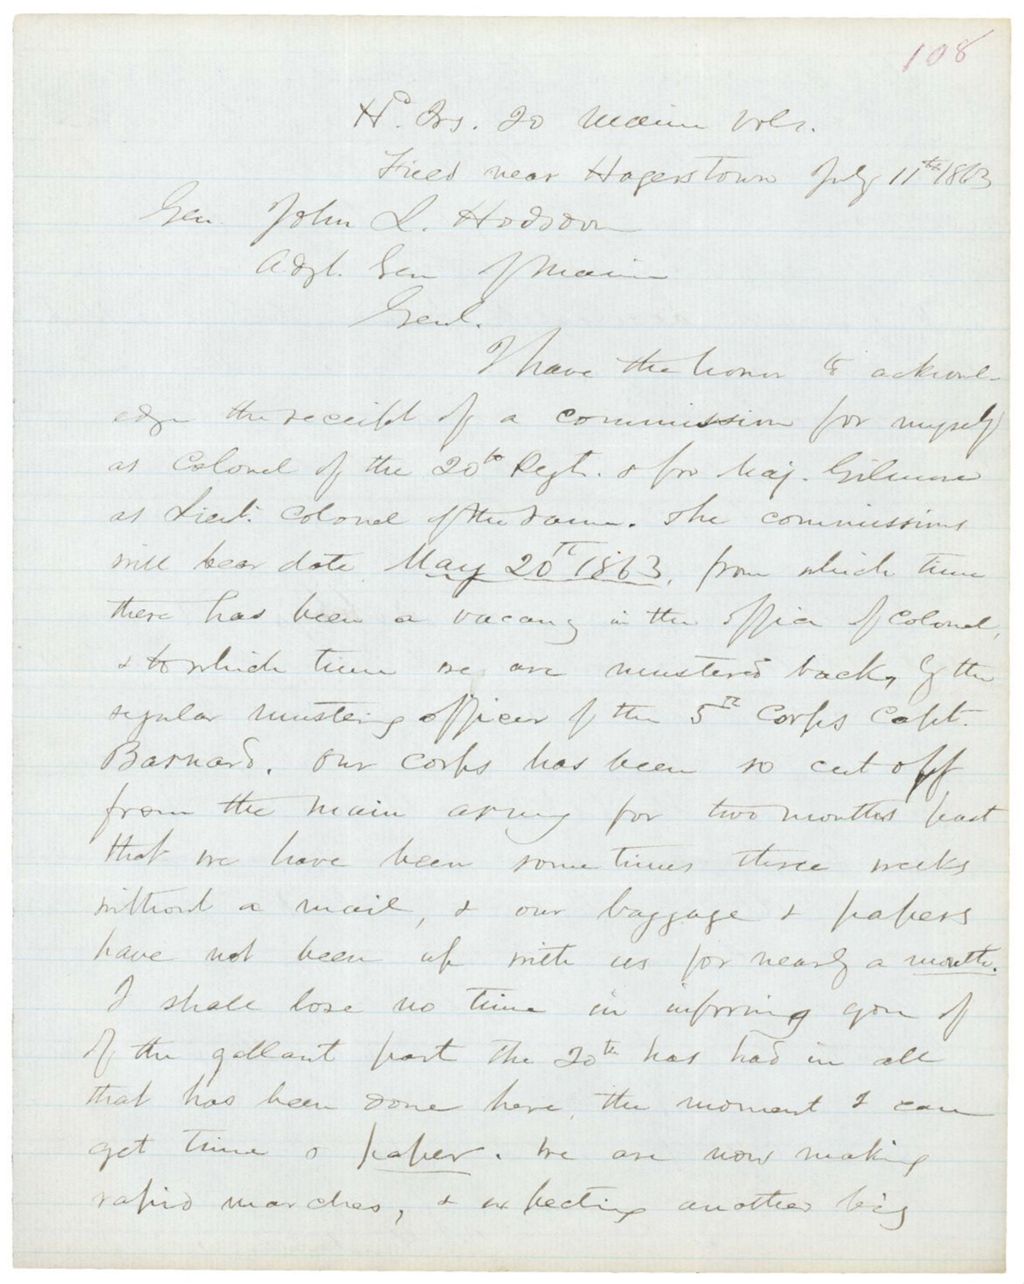 108
Hd. Qrs. 20 Maine Vols.
Field near Hagerstown July 11th 1863
Gen. John L. Hodsdon
Adjt. Gen of Maine
Genl.
I have the honor to acknowl-
edge the receipt of a commission for myself
as Colonel of the 20th Regt. & for Maj. Gilmore
as Lieut. Colonel of the same. The commissions
will bear date May 20th 1863, from which time
there has been a vacancy in the office of Colonel,
& to which time we are mustered back, by the
regular mustering officer of the 5th Corps Capt.
Barnard. Our corps has been so cut off
from the main army for two months past
that we have been sometimes three weeks
without a mail, & our baggage & papers
have not been up with us for nearly a month.
I shall lose no time in informing you of
of the gallant part the 20th has had in all
that has been done here, the moment I can
get time & paper. We are now making
rapid marches, & expecting another big